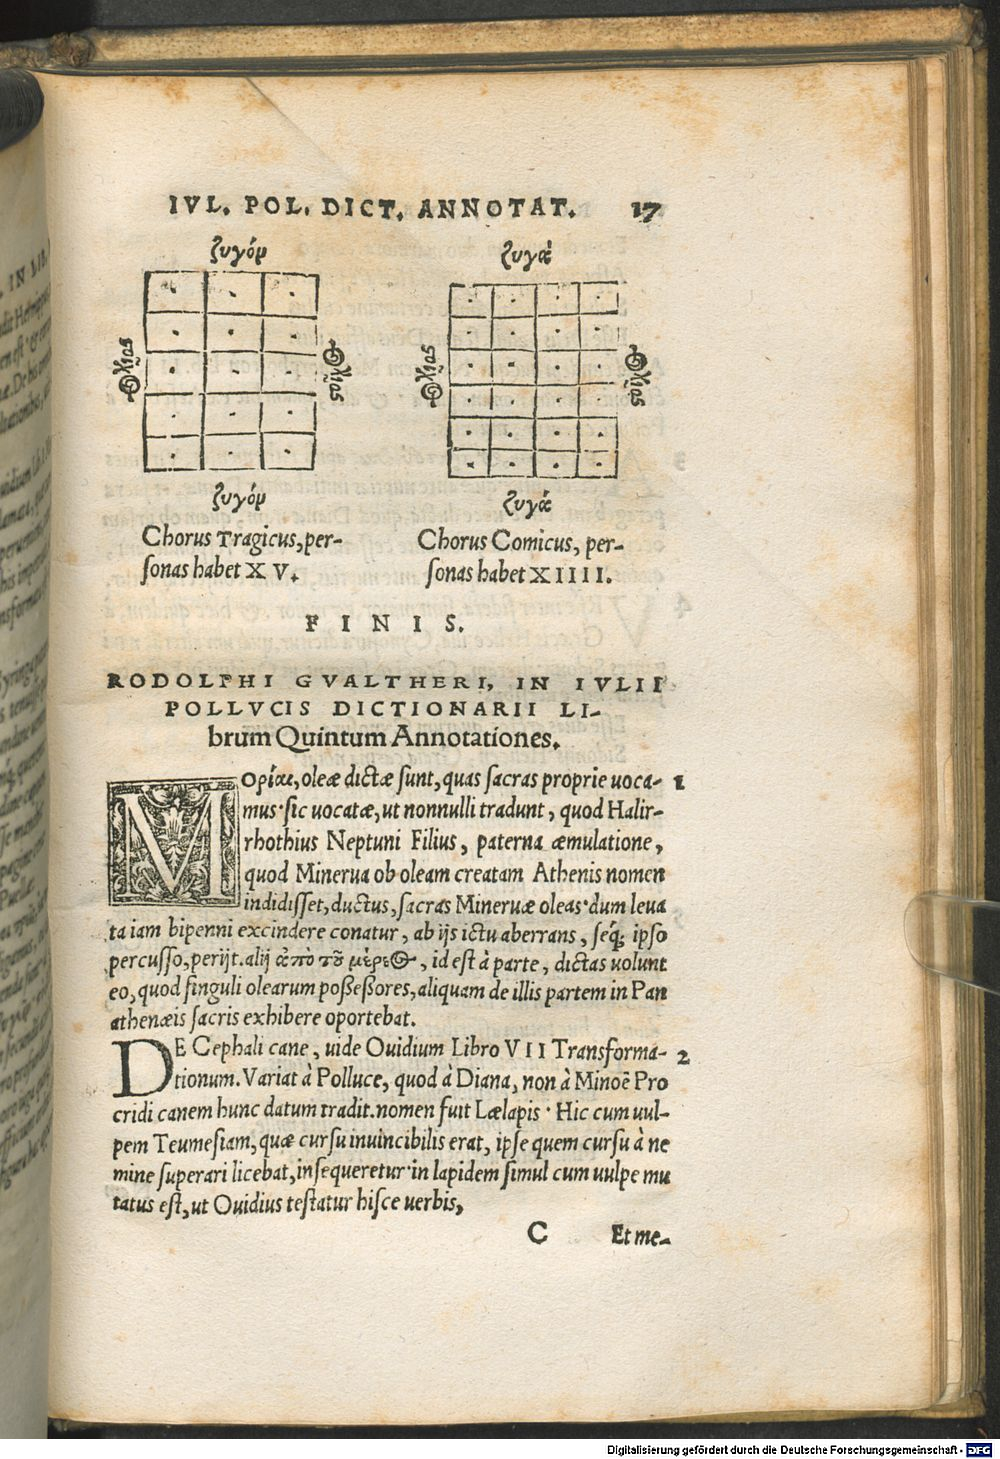 IVL. POL. DICT. ANNOTAT. 17
ζυγόρ
ζυγὰ
ζυγόρ
ζυγά
Chorus Tragicus, per-
sonas habet X V.
Chorus Comicus, per-
sonas habet X I I I I.
F I N I S.
RODOLPHI GVALTHERI, IN IVLII
POLLVCIS DICTIONARII LI-
brum Quintum Annotationes.
MOρίαι, oleæ dictæ sunt, quas sacras proprie uoca- 1
mus·sic uocatæ, ut nonnulli tradunt, quod Halir-
rhothius Neptuni Filius, paterna æmulatione,
quod Minerua ob oleam creatam Athenis nomen
indidisset, ductus, sacras Mineruæ oleas·dum leua
ta iam bipenni excindere conatur, ab ijs ictu aberrans, seq́; ipso
percusso, perijt. alij ἀπὸ τοῦ μέρεος, id est à parte, dictas uolunt
eo, quod singuli olearum poßeßores, aliquam de illis partem in Pan
athenæis sacris exhibere oportebat.
DE Cephali cane, uide Ouidium Libro V I I Transforma- 2
tionum. Variat à Polluce, quod à Diana, non à Minoë Pro
cridi canem hunc datum tradit. nomen fuit Lælapis· Hic cum uul-
pem Teumesiam, quæ cursu inuincibilis erat, ipse quem cursu à ne
mine superari licebat, insequeretur·in lapidem simul cum uulpe mu
tatus est, ut Ouidius testatur hisce uerbis,
C Et me-
Digitalisierung gefördert durch die Deutsche Forschungsgemeinschaft - DFG